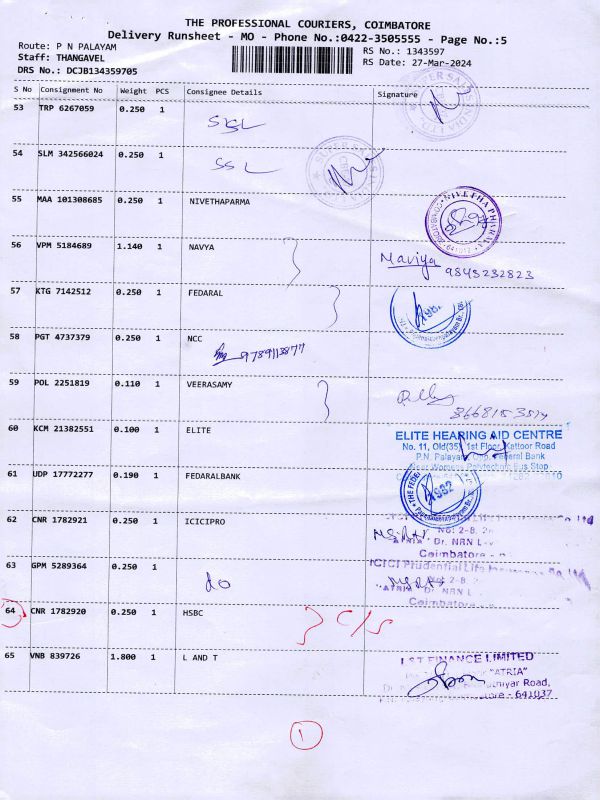 THE PROFESSIONAL COURIERS, COIMBATORE
Delivery Runsheet - MO - Phone No.:0422-3505555 - Page No.:5
Route: P N PALAYAM
RS No.: 1343597
Staff: THANGAVEL
RS Date: 27-Mar-2024
DRS No.: DCJB134359705
S No Consignment No Weight PCS Consignee Details Signature
53 TRP 6267059 0.250 1
54 SLM 342566024 0.250 1 SSL
55 MAA 101308685 0.250 1 NIVETHAPARMA
56 VPM 5184689 1.140 1 NAVYA
Naviya 9843232823
57 KTG 7142512 0.250 1 FEDARAL
58 PGT 4737379 0.250 1 NCC
9789113877
59 POL 2251819 0.110 1 VEERASAMY
60 KCM 21382551 0.100 1 ELITE
ELITE HEARING AID CENTRE
No. 11, Old(35), 1st Floor, Kattoor Road
P.N. Palayam, Opp. Federal Bank
Near Womens Polytechnic Bus Stop
61 UDP 17772277 0.190 1 FEDARALBANK
62 CNR 1782921 0.250 1 ICICIPRO
Dr. NRN
Coimbatore
63 GPM 5289364 0.250 1 do
ICICI Prudential Life
Dr. NRN
Coimbatore
64 CNR 1782920 0.250 1 HSBC C/S
65 VNB 839726 1.800 1 L AND T
L&T FINANCE LIMITED
"ATRIA"
Road,
Coimbatore - 641037
1